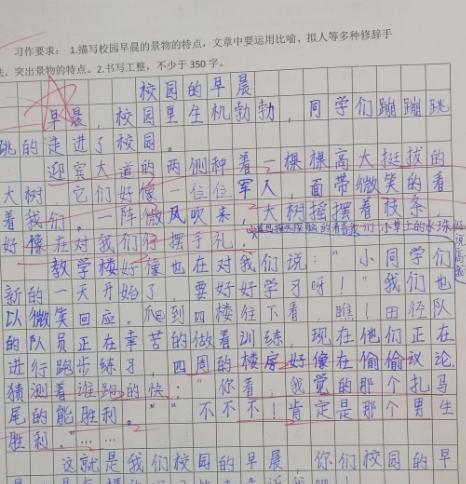 习作要求：1.描写校园早晨的景物的特点，文章中要运用比喻、拟人等多种修辞手
法，突出景物的特点。2.书写工整，不少于 350 字。
校园的早晨
早晨，校园里生机勃勃，同学们蹦蹦跳
跳的走进了校园。
迎宾大道的两侧种着一棵棵高大挺拔的
大树，它们好像一位位军人，面带微笑的看
着我们。一阵微风吹来，大树摇摆着枝条
好像在对我们行摆手礼。
小草上的水珠
教学楼好像也在对我们说："小同学们
新的一天开始了，要好好学习呀！"我们也
以微笑回应。爬到四楼往下看，瞧！田径队
的队员正在幸苦的做着训练，现在他们正在
进行跑步练习，四周的楼房好像在偷偷议论
猜测着谁跑的快："你看，我觉的那个扎马
尾的能胜利。""不不不！肯定是那个男生
胜利。"……
这就是我们校园的早晨，你们校园的早